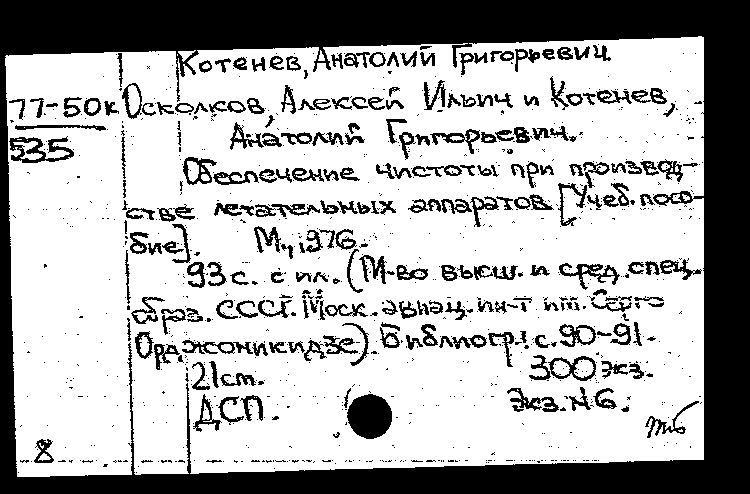 Котенев, Анатолий Григорьевич
77-50к Осколков, Алексей Ильич и Котенев,
535 Анатолий Григорьевич.
Обеспечение чистоты при производ-
стве летательных аппаратов [Учеб. посо-
бие]. М., 1976.
93 с. с ил. (М-во высш. и сред. спец.
образ. СССР. Моск. авиац. ин-т им. Серго
Орджоникидзе). Библиогр.: с. 90-91.
21 см. 300 экз.
ДСП. Экз. N 6.
8